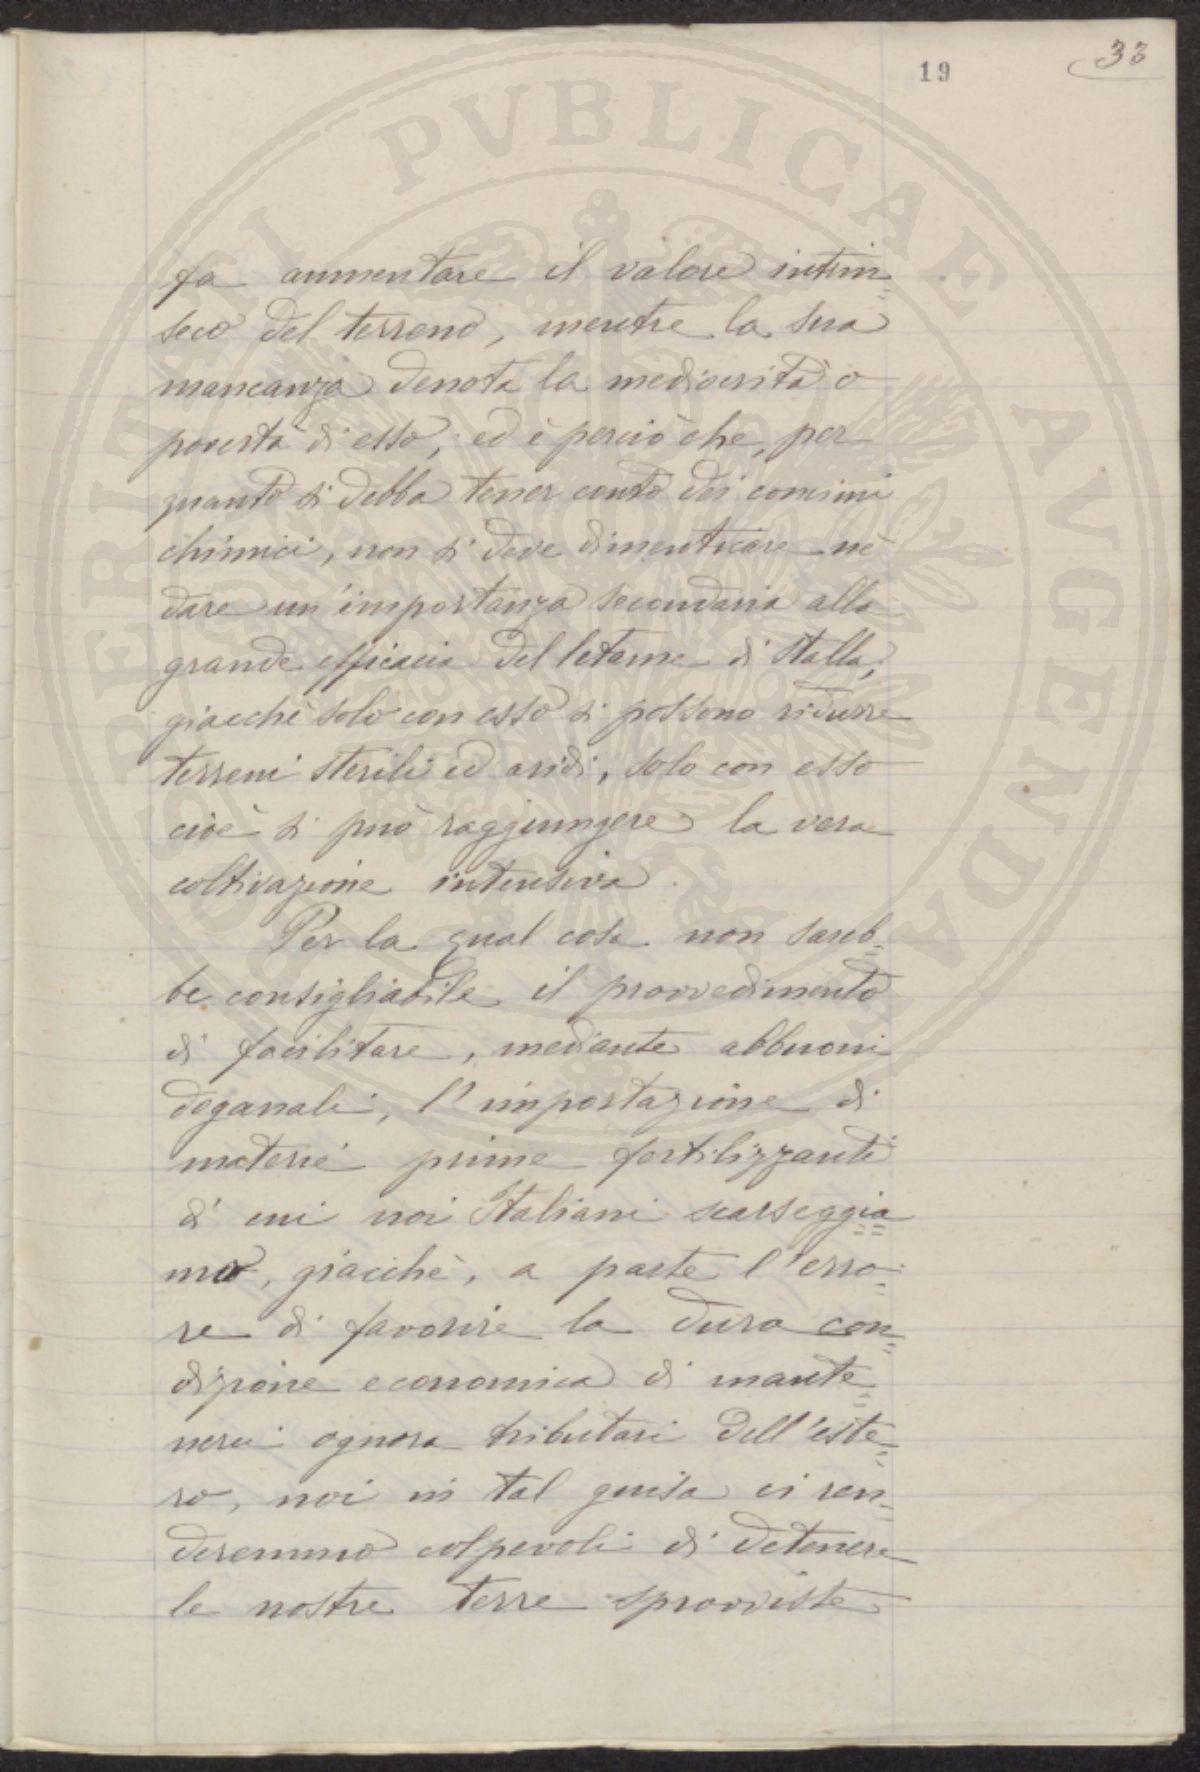 19
33
fa aumentare il valore intrin=
seco del terreno, mentre la sua
mancanza denota la mediocrità o
povertà di esso, ed è perciò che, per
quanto si debba tener conto dei concimi
chimici, non si deve dimenticare nè
dare un'importanza secondaria alla
grande efficacia del letame di stalla,
giacchè solo con esso si possono ridurre
terreni sterili ed aridi, solo con esso
cioè si può raggiungere la vera
coltivazione intensiva.
Per la qual cosa non sareb=
be consigliabile il provvedimento
di facilitare, mediante abbuoni
doganali, l'importazione di
materie prime fertilizzanti
di cui noi Italiani scarseggia=
mo, giacchè, a parte l'erro=
re di favorire la dura con=
dizione economica di mante=
nerci ognora tributari dell'este=
ro, noi in tal guisa ci ren=
deremmo colpevoli di detenere
le nostre terre sprovviste
PROSPERITATI PVBLICAE AVGENDAE